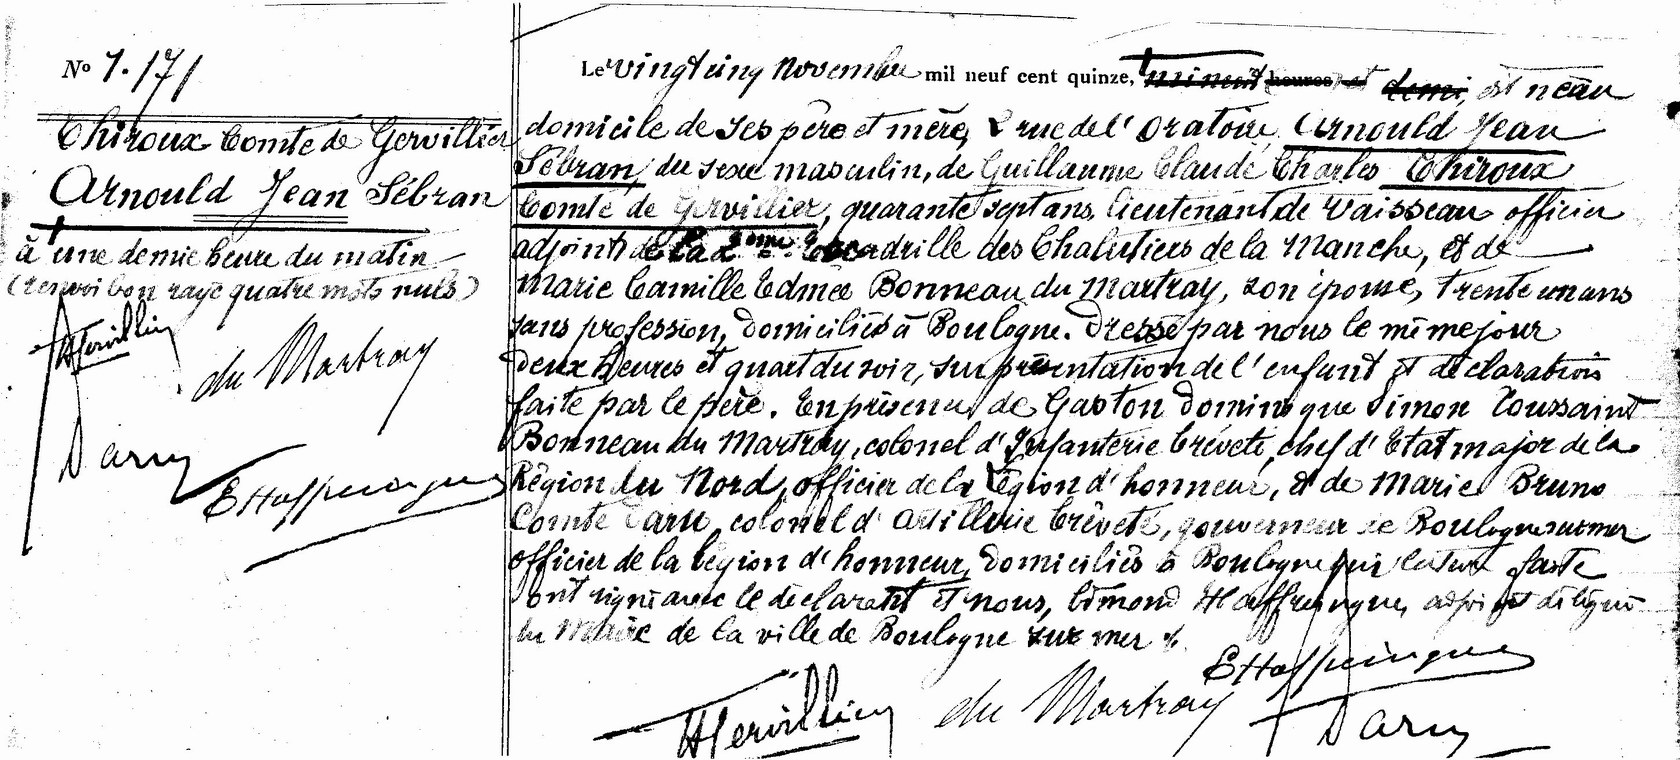 N° 1.171
Thiroux Comte de Gervillier
Arnould Jean Sébran
à une demie heure du matin
(renvoi bon rayé quatre mots nuls)
Gervillier
du Martray
Daru
E Haffreingue
Le vingt cinq novembre mil neuf cent quinze, minuit heures et demi, est né au
domicile de ses père et mère, 2 rue de l'Oratoire Arnould Jean
Sébran, du sexe masculin, de Guillaume Claude Charles Thiroux
Comte de Gervillier, quarante sept ans, lieutenant de vaisseau officier
adjoint de la 2ème Escadrille des Chalutiers de la Manche, et de
Marie Camille Edmée Bonneau du Martray, son épouse, trente un ans
sans profession, domiciliés à Boulogne. Dressé par nous le même jour
deux heures et quart du soir, sur présentation de l'enfant et déclaration
faite par le père. En présence de Gaston Dominique Simon Toussaint
Bonneau du Martray, colonel d'Infanterie breveté, chef d'Etat major de la
Région du Nord, officier de la Légion d'honneur, et de Marie Bruno
Comte Daru, colonel d'Artillerie breveté, gouverneur de Boulogne sur mer
officier de la légion d'honneur, domiciliés à Boulogne qui lecture faite
ont signé avec le déclarant et nous, Haffreingue, adjoint délégué
du Maire de la ville de Boulogne sur mer %.
E Haffreingue
Gervillier du Martray Daru